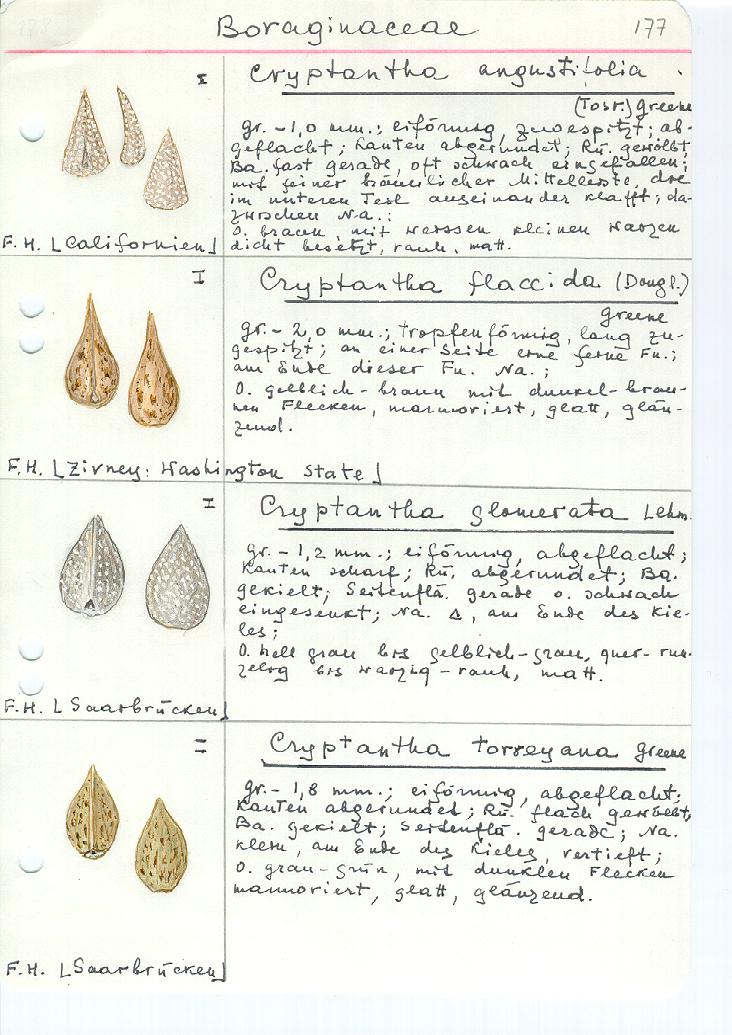 Boraginaceae 177
Cryptantha angustifolia
(Torr.) Greene
gr. - 1,0 mm.; eiförmig, zugespitzt; ab-
geflacht; Kanten abgerundet; Rü. gewölbt
Ba. fast gerade, oft schwach eingefallen;
mit feiner bräunlicher Mittelleiste, die
im unteren Teil auseinander klafft; da-
zwischen Na.;
O. braun, mit weissen kleinen Warzen
dicht besetzt, rauh, matt.
F.H. [Californien]
Cryptantha flaccida (Dougl.)
Greene
gr. - 2,0 mm.; tropfenförmig, lang zu-
gespitzt; an einer Seite eine feine Fu.;
am Ende dieser Fu. Na.;
O. gelblich-braun mit dunkel-brau-
nen Flecken, marmoriert, glatt, glän-
zend.
F.H. [Zirney: Washington State]
Cryptantha glomerata Lehm.
gr. - 1,2 mm.; eiförmig, abgeflacht;
Kanten scharf; Rü. abgerundet; Ba.
gekielt; Seitenflä. gerade o. schwach
eingesenkt; Na. Δ, am Ende des Kie-
les;
O. hell grau bis gelblich-grau, quer-run-
zelig bis warzig-rauh, matt.
F.H. [Saarbrücken]
Cryptantha torreyana Greene
gr. - 1,8 mm.; eiförmig, abgeflacht;
Kanten abgerundet; Rü. flach gewölbt,
Ba. gekielt; Seitenflä. gerade; Na.
klein, am Ende des Kieles, vertieft;
O. grau-grün, mit dunklen Flecken
marmoriert, glatt, glänzend.
F.H. [Saarbrücken]